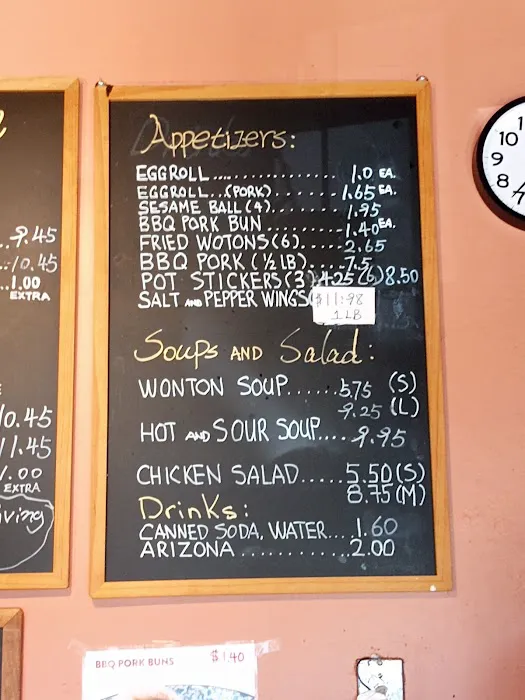 Appetizers:
EGGROLL.... 1.0 EA.
EGGROLL...(PORK). 1.65 EA.
SESAME BALL (4). 1.95
BBQ PORK BUN 1.40 EA.
FRIED WOTONS (6). 2.65
BBQ PORK (½ LB). 7.5
POT STICKERS (3) 4.25 (6) 8.50
SALT AND PEPPER WINGS $11.98
1 LB
Soups AND Salad:
WONTON SOUP...... 5.75 (S)
9.25 (L)
HOT AND SOUR SOUP.... 9.95
CHICKEN SALAD..... 5.50 (S)
8.75 (M)
Drinks:
CANNED SODA, WATER... 1.60
ARIZONA........... 2.00
..9.45
..10.45
..1.00
EXTRA
10.45
11.45
1.00
EXTRA
iving
BBQ PORK BUNS $1.40
1
10
9
8
7